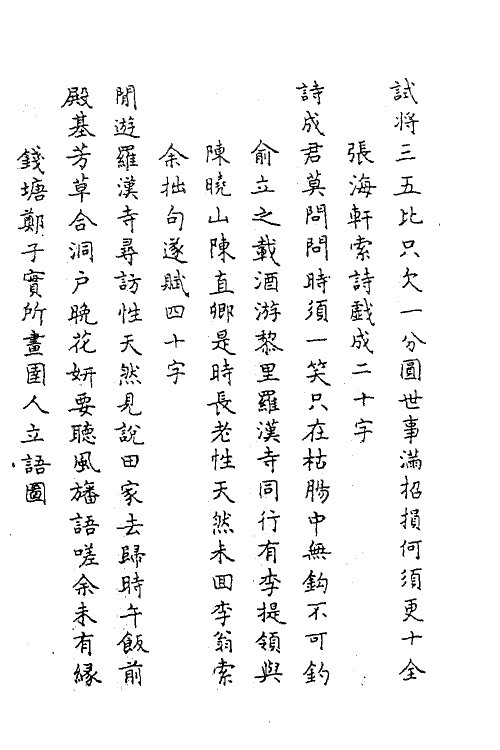 試將三五比只欠一分圓世事滿招損何須更十全
張海軒索詩戲成二十字
詩成君莫問問時須一笑只在枯腸中無鈎不可釣
俞立之載酒游黎里羅漢寺同行有李提領與
陳曉山陳直卿是時長老性天然未回李翁索
余拙句遂賦四十字
閒遊羅漢寺尋訪性天然見說田家去歸時午飯前
殿基芳草合洞户晚花妍要聽風旛語嗟余未有緣
錢塘鄭子實所畫圉人立語圖